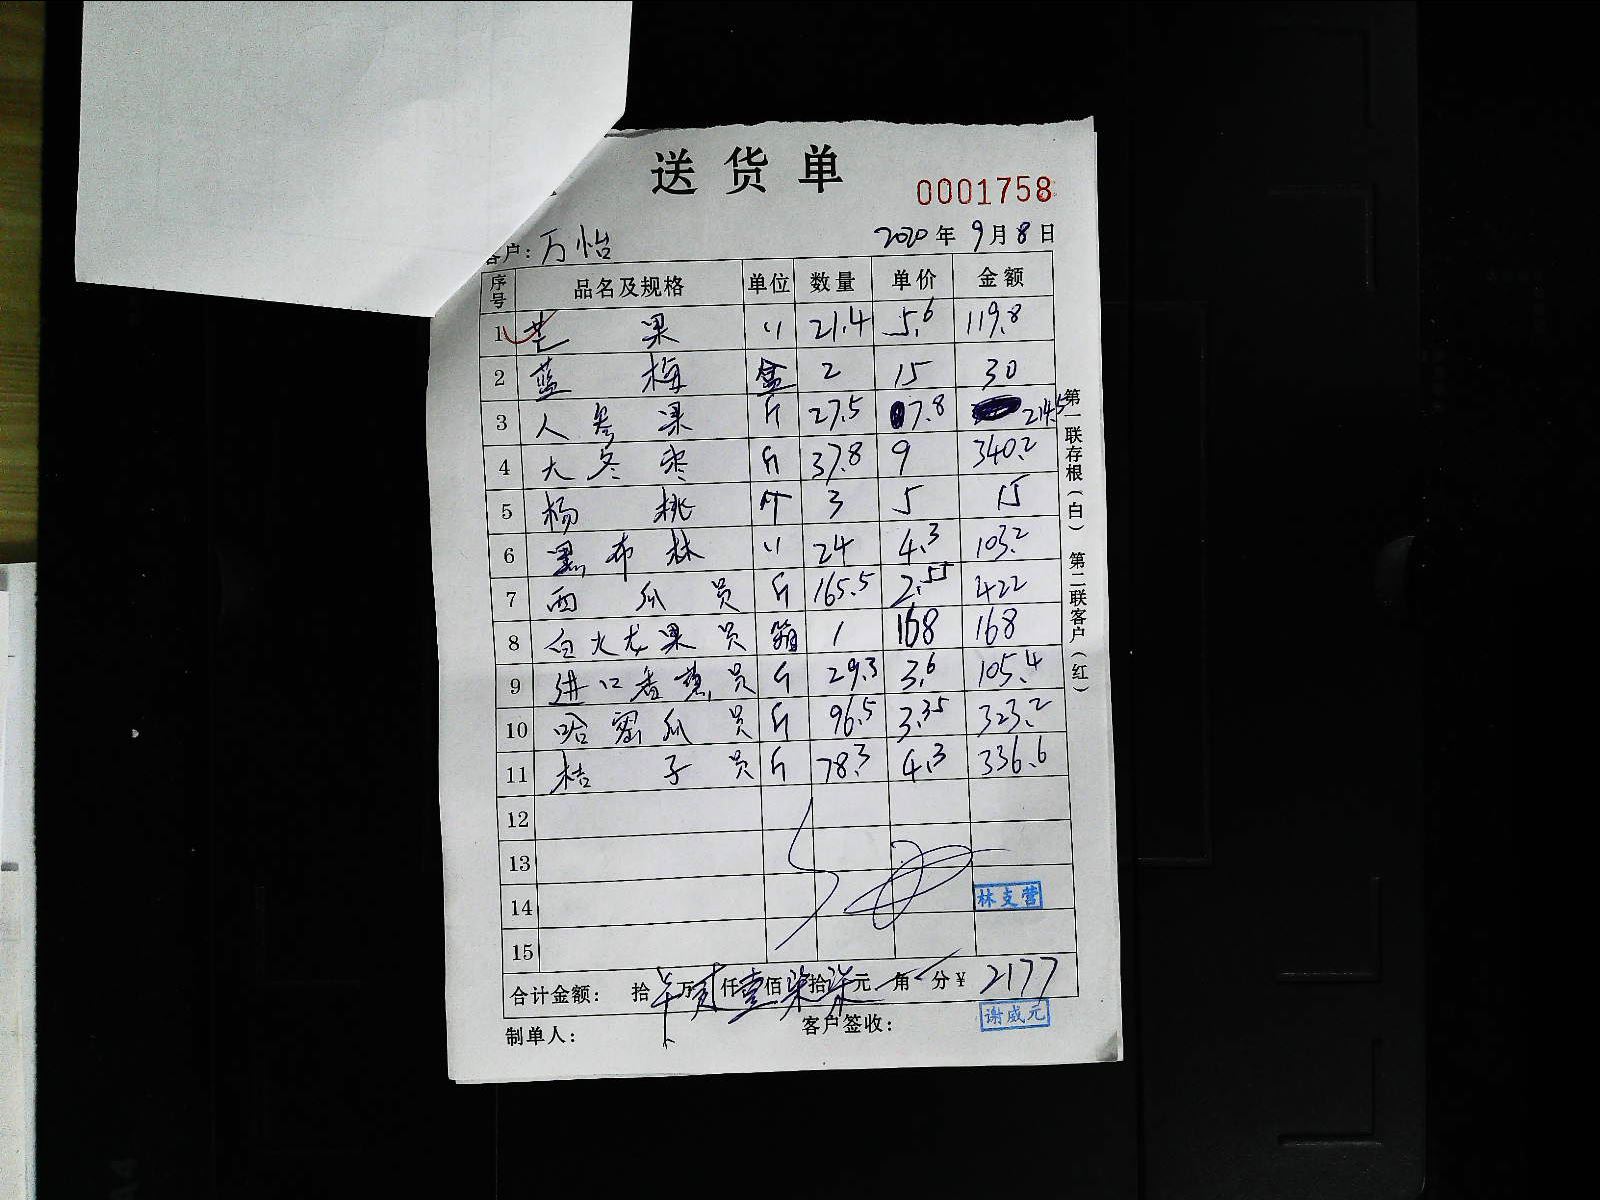 送货单
0001758
客户：万怡 2020年9月8日
序号 品名及规格 单位 数量 单价 金额
1 芒果 〃 21.4 5.6 119.8
2 蓝梅 盒 2 15 30
3 人参果 斤 27.5 7.8 214.5
4 大冬枣 斤 37.8 9 340.2
5 杨桃 斤 3 5 15
6 黑布林 〃 24 4.3 103.2
7 西瓜 员 斤 165.5 2.55 422
8 白火龙果 员 箱 1 168 168
9 进口香蕉 员 斤 29.3 3.6 105.4
10 哈密瓜 员 斤 96.5 3.35 323.2
11 桔子 员 斤 78.3 4.3 336.6
12
13
14 林支营
15
合计金额： 拾万贰仟壹佰柒拾柒元 角 分￥2177
制单人： 客户签收： 谢威元
第一联存根（白） 第二联客户（红）